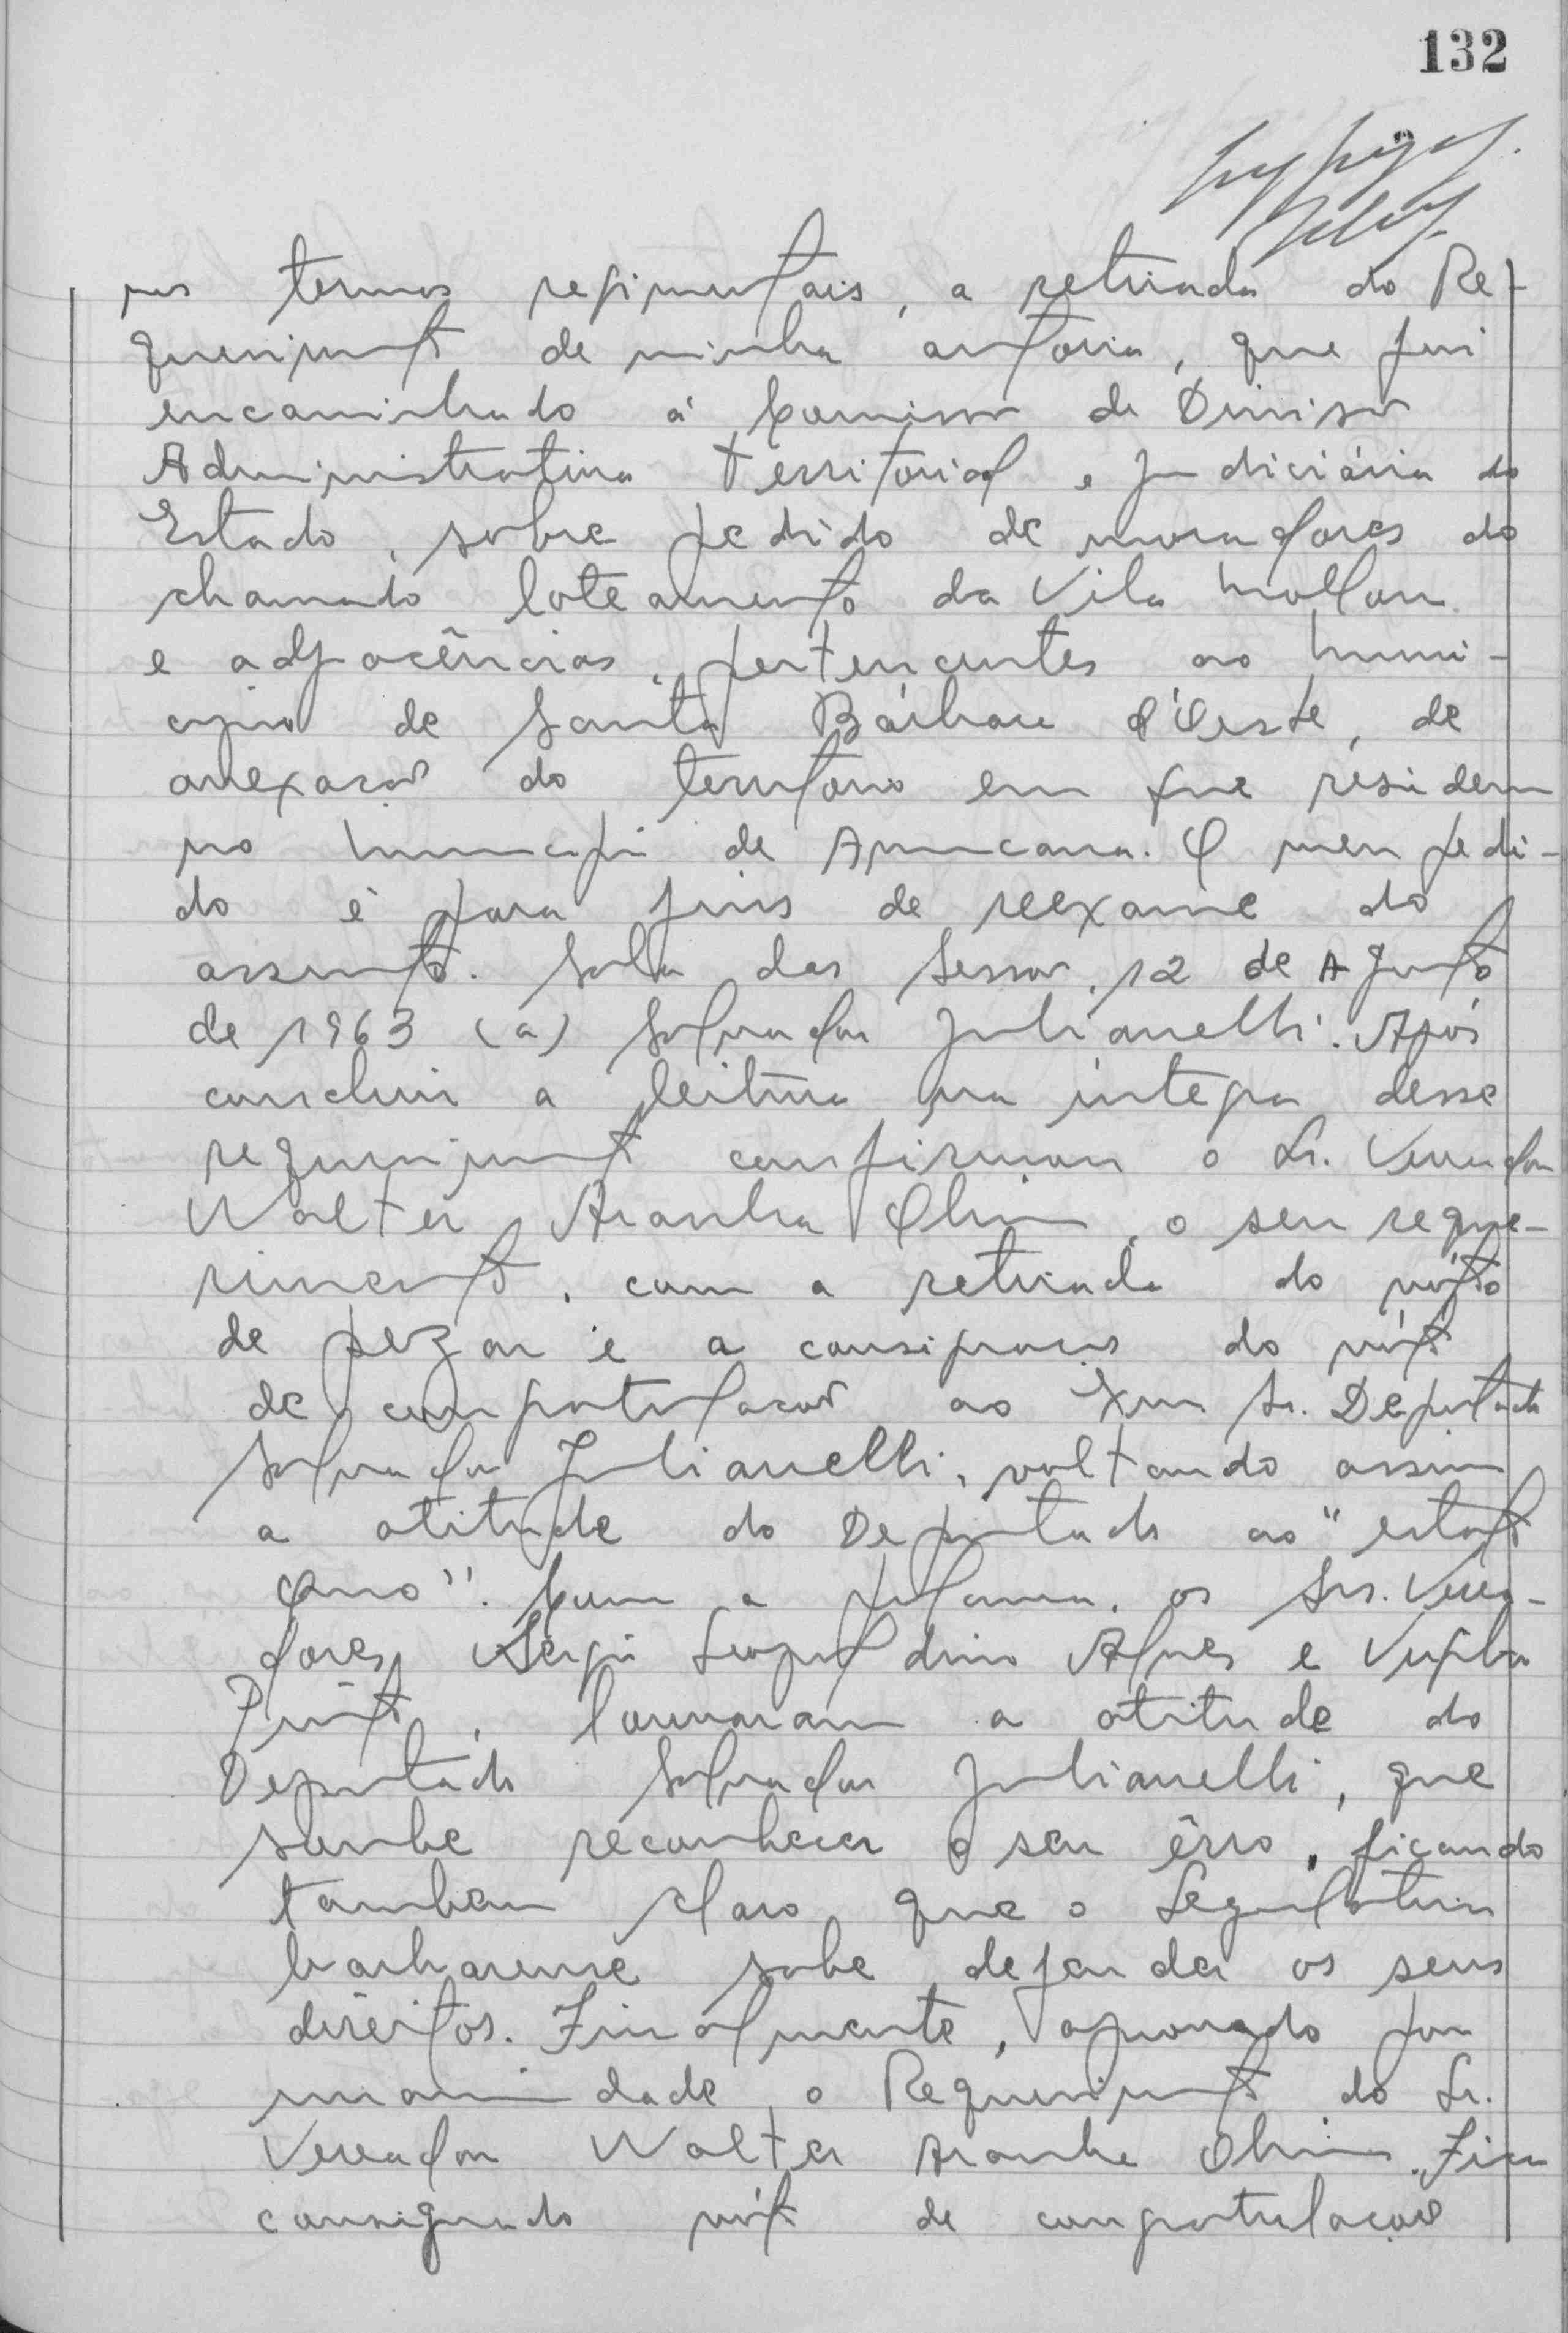 132
nos termos regimentais, a retirada do Re-
querimento de minha autoria, que foi
encaminhado á Comissão de Divisão
Administrativa Territorial e Judiciária do
Estado, sobre pedido de moradores do
chamado loteamento da Vila Mollon
e adjacências, pertencentes ao Muni-
cipio de Santa Bárbara d'Oeste, de
anexação do territorio em que residem
no Municipio de Americana. O meu pedi-
do é para fins de reexame do
assunto. Sala das Sessões, 12 de Agosto
de 1963 (a) Salvador Julianelli. Após
concluir a leitura na integra desse
requerimento confirmou o Sr. Vereador
Walter Aranha Olivio, o seu reque-
rimento, com a retirada do vóto
de pezar e a consignação do vóto
de congratulação ao Exmo Sr. Deputado
Salvador Julianelli, voltando assim
a atitude do Deputado ao "estato
quo". Com a palavra, os Srs. Verea-
dores Sérgio Leopoldino Alves e
Pinto, louvaram a atitude do
Deputado Salvador Julianelli, que
soube reconhecer o seu êrro, ficando
tambem claro que o Legislativo
barbarense sabe defender os seus
direitos. Finalmente, aprovado por
unanimidade o Requerimento do Sr.
Vereador Walter Aranha Olivio. Fica
consignado vóto de congratulação